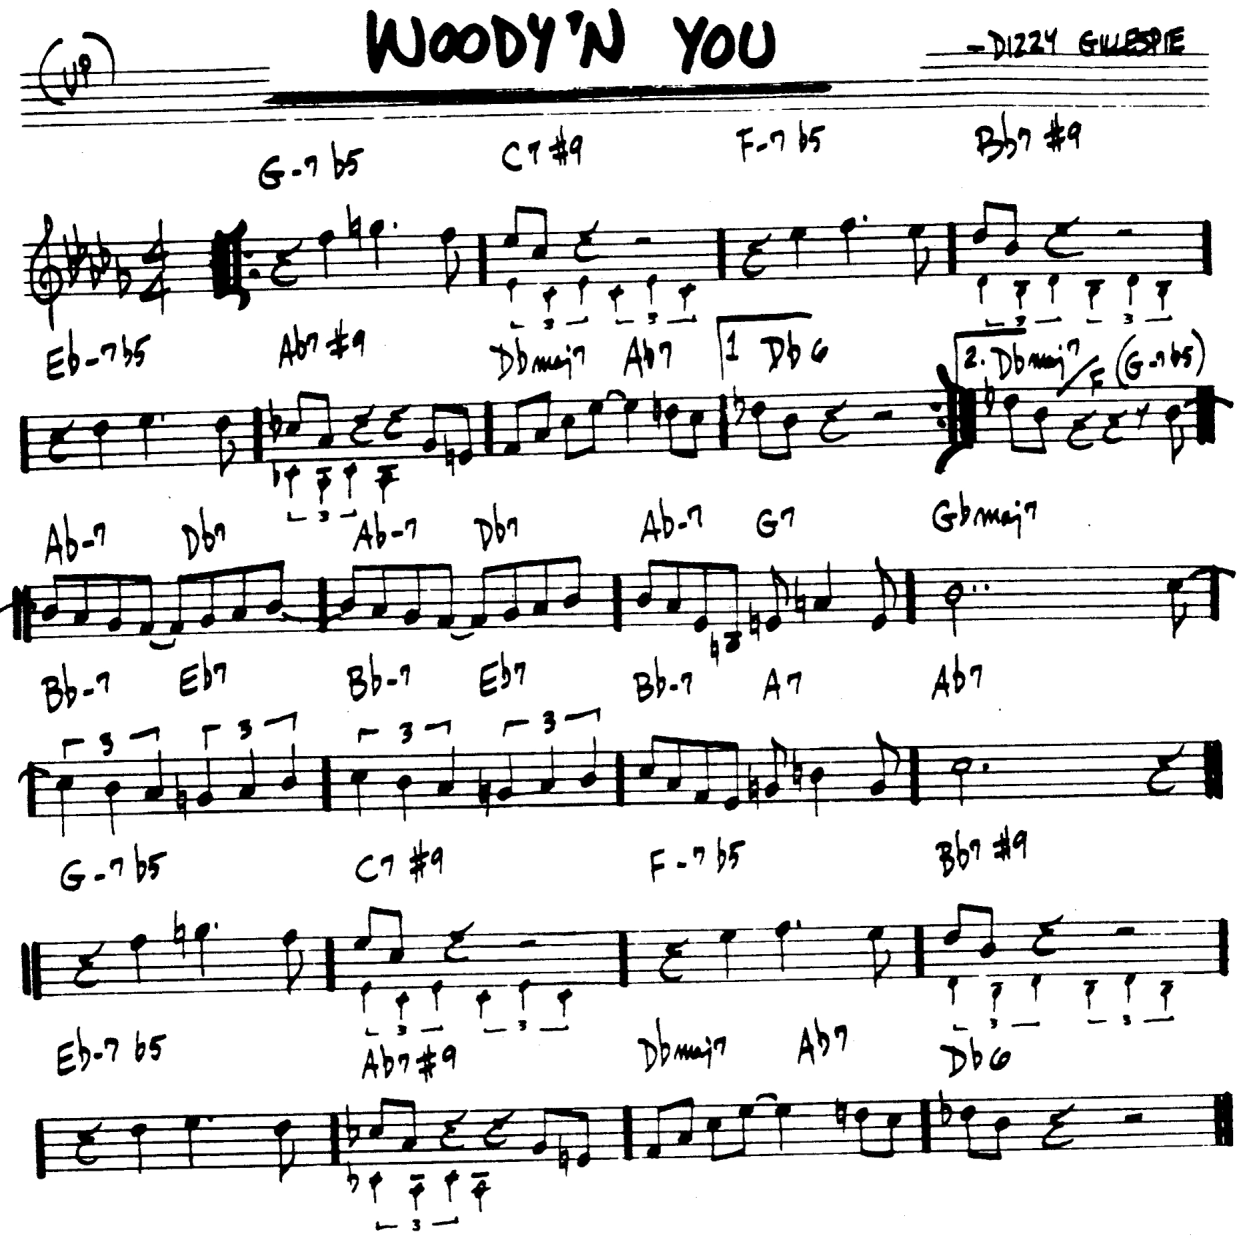 WOODY'N YOU
(UP)
- DIZZY GILLESPIE
G-7 b5 C7 #9 F-7 b5 Bb7 #9
3 3 3 3
Eb-7 b5 Ab7 #9 Dbmaj7 Ab7 1 Db6 2. Dbmaj7/F (G-7 b5)
3
Ab-7 Db7 Ab-7 Db7 Ab-7 G7 Gbmaj7
Bb-7 Eb7 Bb-7 Eb7 Bb-7 A7 Ab7
3 3 3 3
G-7 b5 C7 #9 F-7 b5 Bb7 #9
3 3 3 3
Eb-7 b5 Ab7 #9 Dbmaj7 Ab7 Db6
3